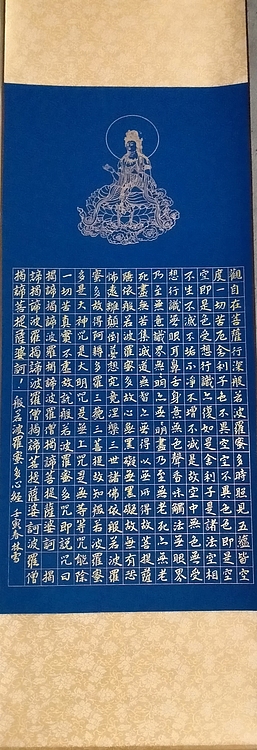 觀自在菩薩行深般若波羅蜜多時照見五蘊皆空
度一切苦厄舍利子色不異空空不異色色即是空
空即是色受想行識亦復如是舍利子是諸法空相
不生不滅不垢不淨不增不減是故空中無色無受
想行識無眼耳鼻舌身意無色聲香味觸法無眼界
乃至無意識界無無明亦無無明盡乃至無老死亦無老
死盡無苦集滅道無智亦無得以無所得故菩提薩
埵依般若波羅蜜多故心無罣礙無罣礙故無有恐
怖遠離顛倒夢想究竟涅槃三世諸佛依般若波羅
蜜多故得阿耨多羅三藐三菩提故知般若波羅蜜
多是大神咒是大明咒是無上咒是無等等咒能除
一切苦真實不虛故說般若波羅蜜多咒即說咒曰
揭諦揭諦波羅揭諦波羅僧揭諦菩提薩婆訶 揭
諦揭諦波羅揭諦波羅僧揭諦菩提薩婆訶波羅僧
揭諦菩提薩婆訶！般若波羅蜜多心經 壬寅春林雪